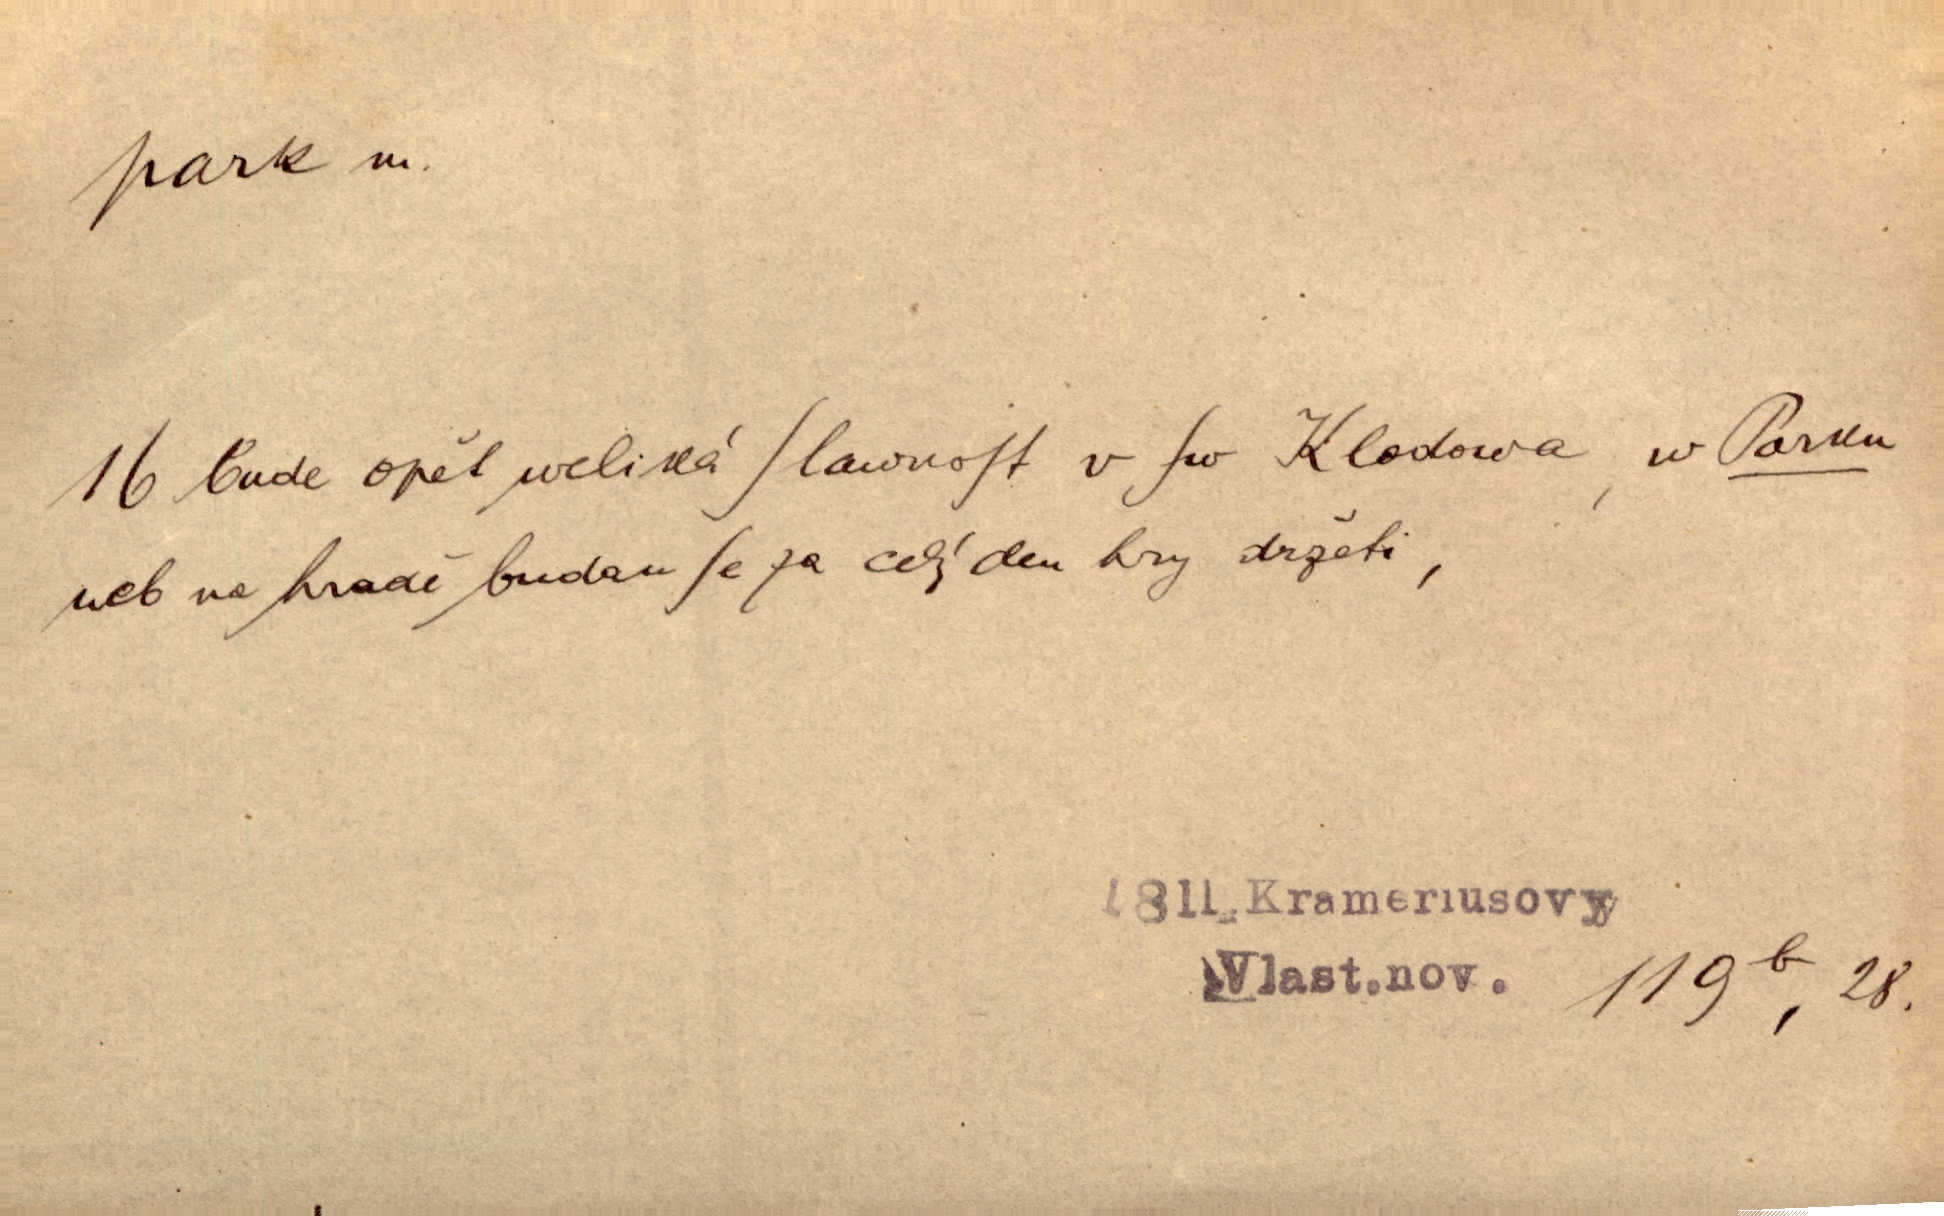 park m.
16 bude opět weliká ſlawnoſt v ſw Klodowa, w Parku
neb na hradě budau ſe za celý den hry držeti,
1811 Krameriusovy
Vlast.nov. 119 b, 28.